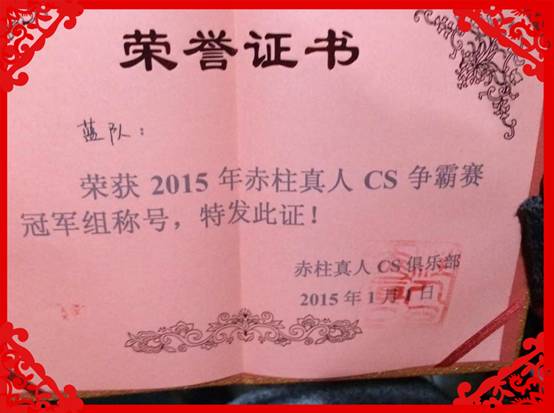 荣誉证书
蓝队：
荣获 2015 年赤柱真人 CS 争霸赛
冠军组称号，特发此证！
赤柱真人 CS 俱乐部
2015 年 1 月 1 日